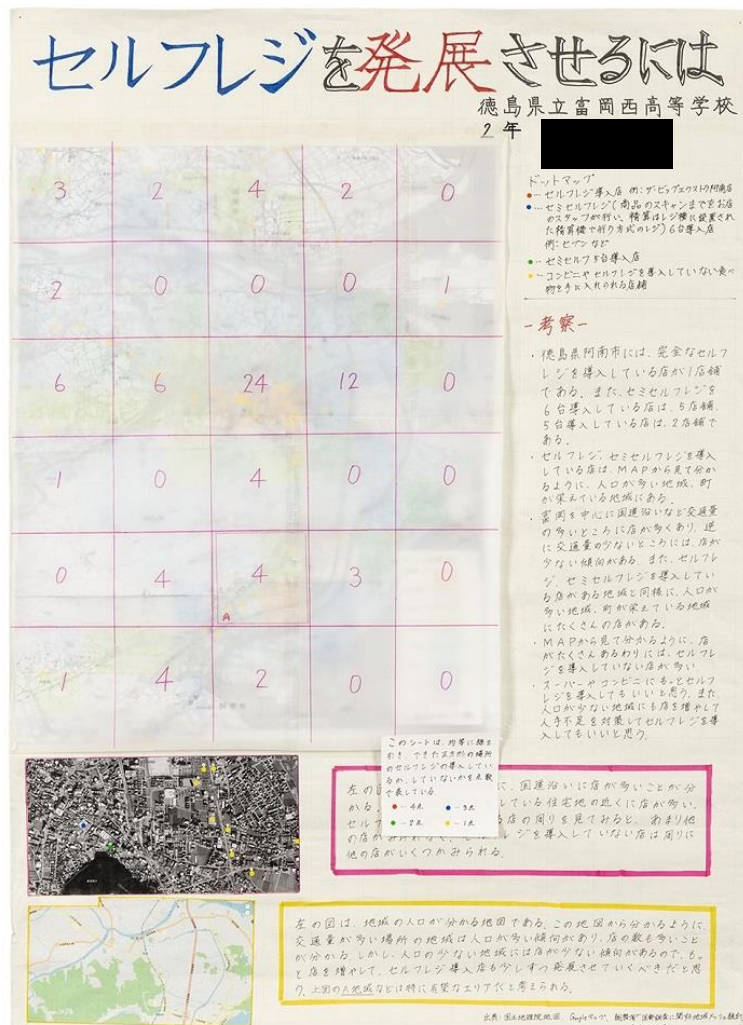 セルフレジを発展させるには
徳島県立富岡西高等学校
2年
ドットマップ
●…セルフレジ導入店 例:ザ・ビッグエクストラ阿南店
●…セミセルフレジ(商品のスキャンまでをお店
のスタッフが行い、精算はレジ横に設置さ
れた精算機で行う方式のレジ)6台導入店
例:セブンなど
●…セミセルフ5台導入店
●…コンビニやセルフレジを導入していない食べ
物を手に入れられる店舗
3 2 4 2 0
2 0 0 0 1
6 6 24 12 0
1 0 4 0 0
0 4 4 3 0
A
1 4 2 0 0
-考察-
・徳島県阿南市には、完全なセルフ
レジを導入している店が1店舗
である。また、セミセルフレジを
6台導入している店は、5店舗、
5台導入している店は、2店舗で
ある。
・セルフレジ、セミセルフレジを導入
している店は、MAPから見て分か
るように、人口が多い地域、町
が栄えている地域にある。
・富岡を中心に国道沿いなど交通量
の多いところに店が多くあり、逆
に交通量の少ないところには、店が
少ない傾向がある。また、セルフレ
ジ、セミセルフレジを導入してい
る店がある地域と同様に、人口が
多い地域、町が栄えている地域
にたくさんの店がある。
・MAPから見て分かるように、店
がたくさんあるわりには、セルフレ
ジを導入していない店が多い。
・スーパーやコンビニにもっとセルフ
レジを導入してもいいと思う。また、
人口が少ない地域にも店を増やして
人手不足を対策してセルフレジを導
入してもいいと思う。
このシートは、均等に線を
引き、できた正方形の場所
のセルフレジの導入してい
るか、していないかを点数
で表している。
●…4点 ●…3点
●…2点 ●…1点
左の図 に、国道沿いに店が多いことが分
かる。 している住宅地の近くに店が多い。
セルフ る店の周りを見てみると、あまり他
の店が レジを導入していない店は周りに
他の店がいくつかみられる。
左の図は、地域の人口が分かる地図である。この地図から分かるように、
交通量が多い場所の地域は人口が多い傾向があり、店の数も多いこと
が分かる。しかし、人口の少ない地域には店が少ない傾向があるので、もっ
と店を増やして、セルフレジ導入店も少しずつ発展させていくべきだと思
う。上図のA地域などは特に有望なエリアだと考えられる。
出典:国土地理院地図、Googleマップ、